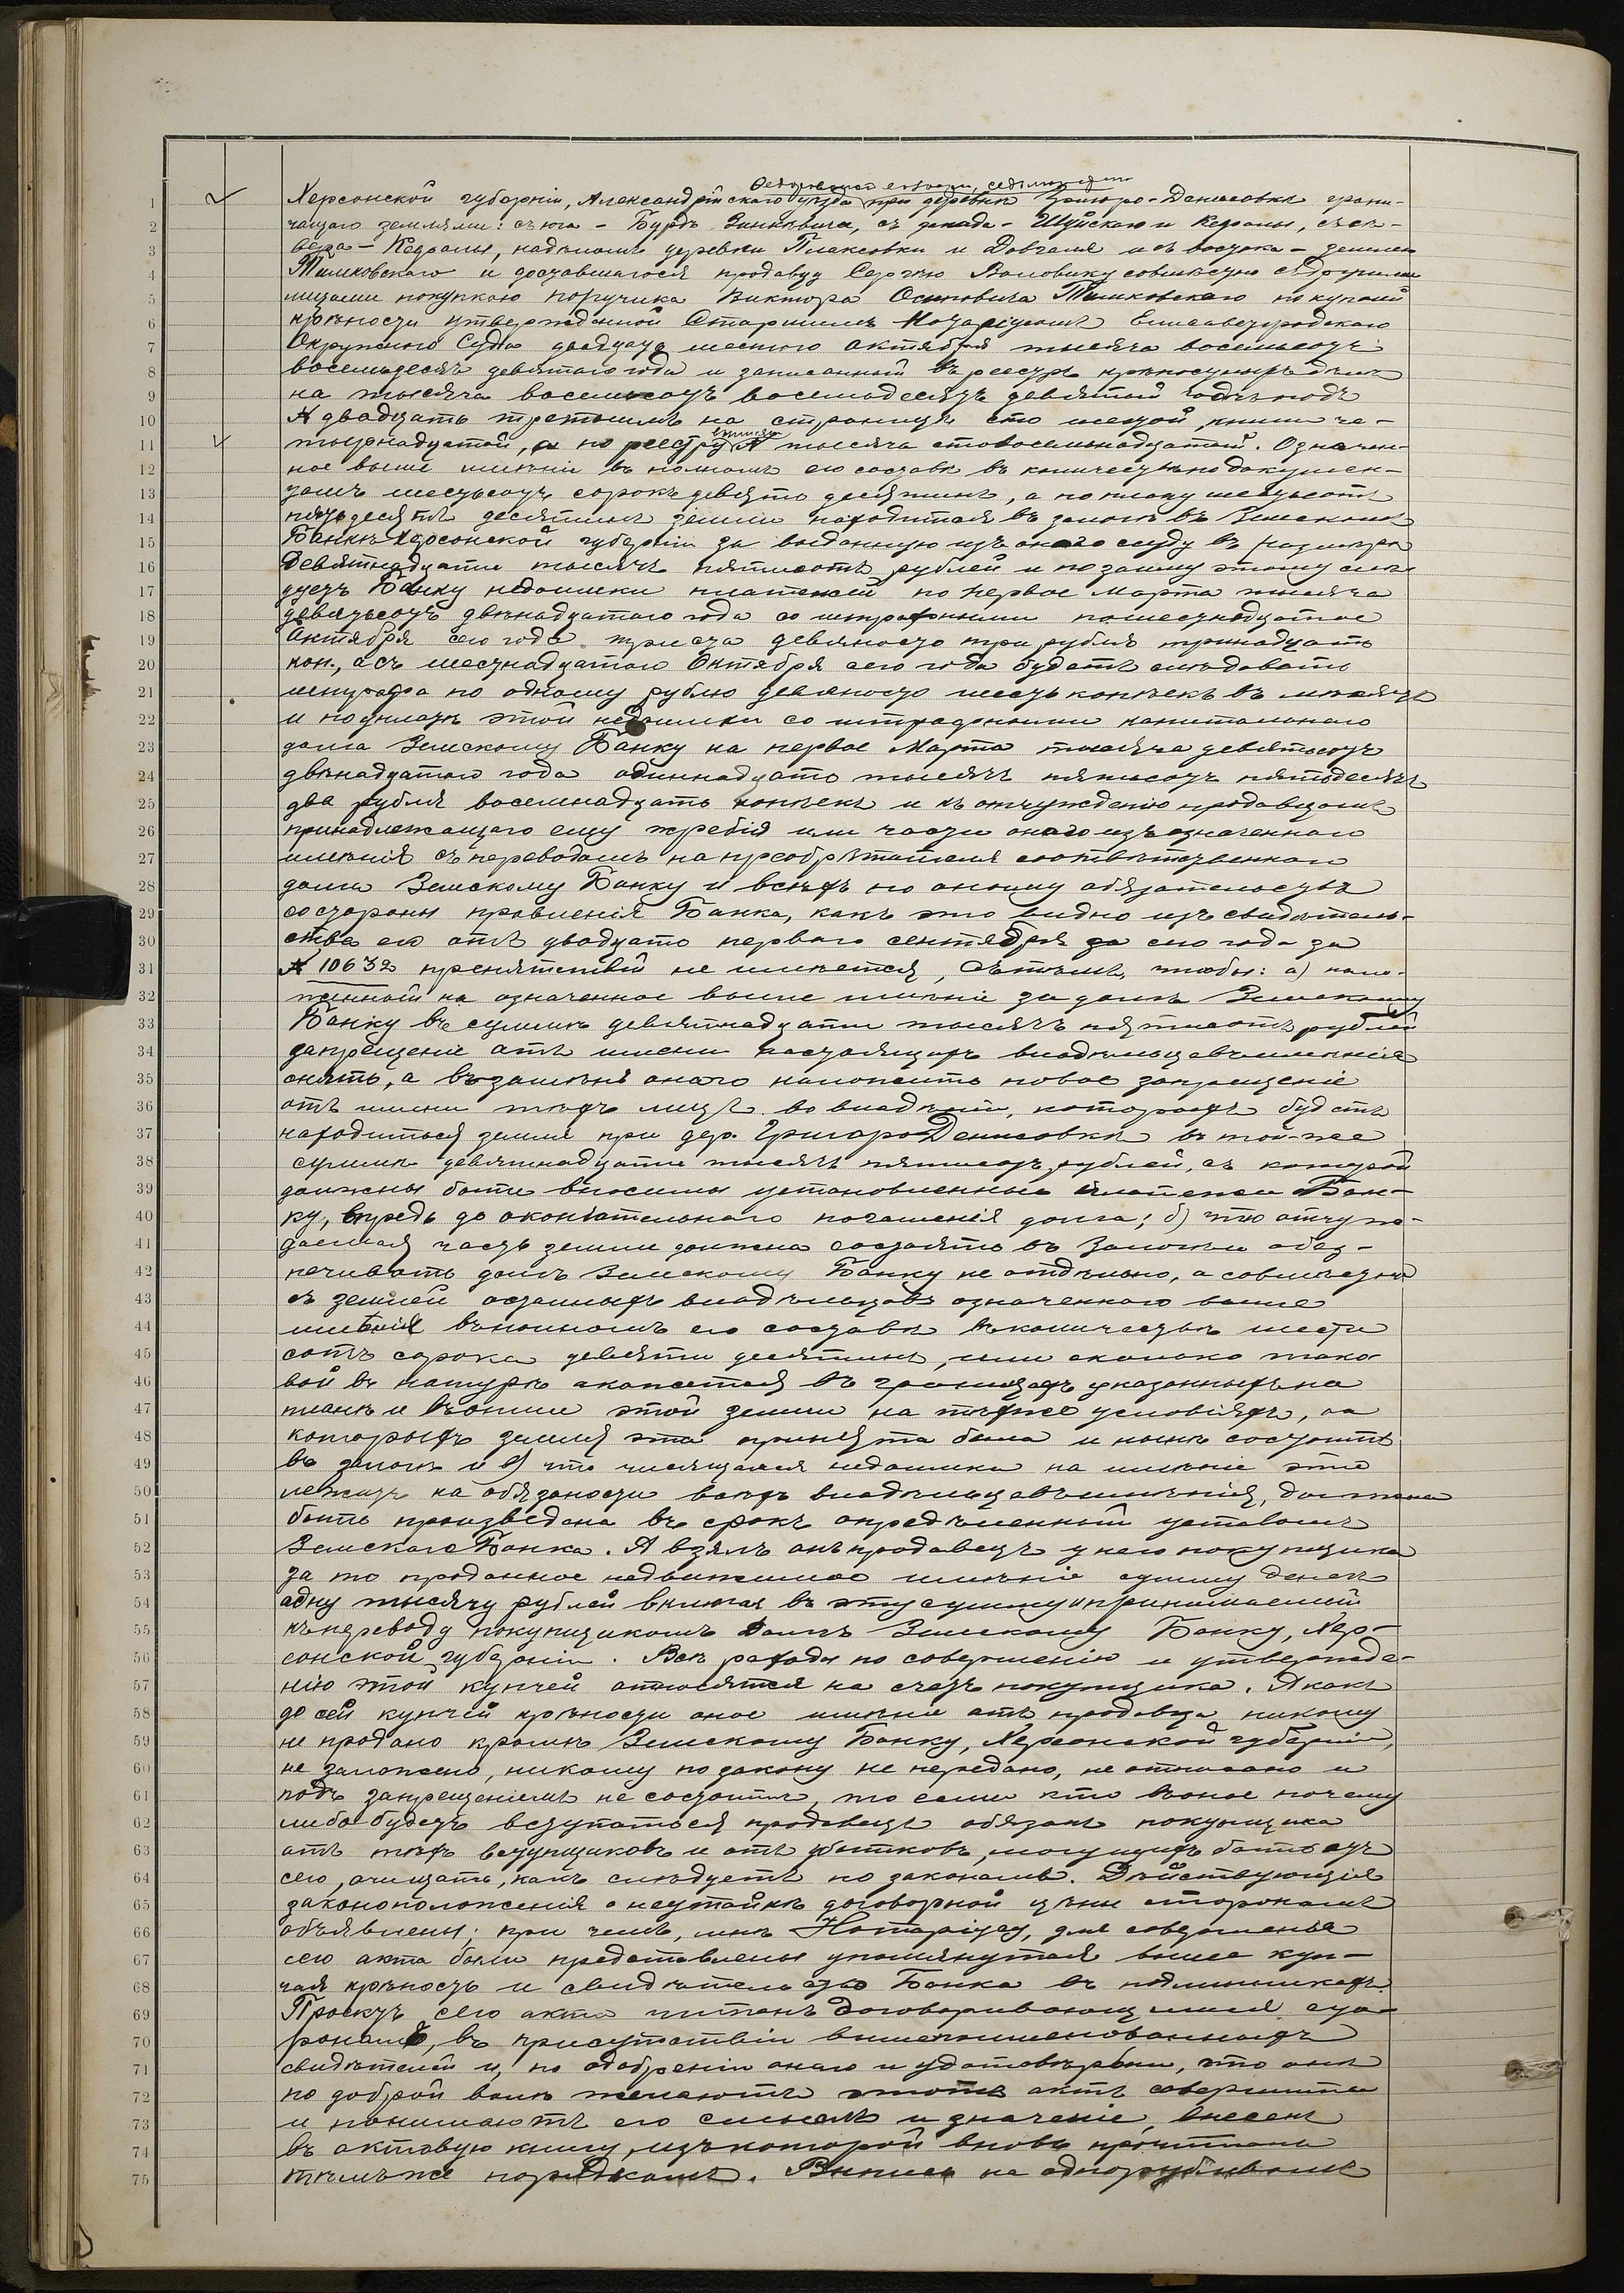 Херсонской губерніи, Александрійскаго уѣзда при деревнѣ Григоро-Денисовкѣ грани-
чащаго землями: съ юга – Бурдъ Зинькевича, съ запада – Шуйскаго и Кефалы, съ сѣ-
вера – Кефалы, надѣломъ деревни Плаксовки и Довгаля и съ востока – землею
Тимковскаго и доставшагося продавцу Сергѣю Воловику совмѣстно съ другими
лицами покупкою поручика Виктора Осиповича Тимковскаго по купчей
крѣпости утвержденной Старшимъ Нотаріусомъ Елисаветградскаго
Окружного Суда двадцать шестого Октября тысяча восемьсотъ
восемьдесятъ девятаго года и записанный въ реестрѣ крѣпостныхъ дѣлъ
на тысяча восемьсотъ восемьдесятъ девятый годъ подъ
№ двадцать третьимъ на страницѣ сто шестой, книги че-
тырнадцатой, а по реестру № тысяча сто восемьнадцатый. Означен-
ное выше имѣніе въ полномъ его составѣ въ количествѣ по докумен-
тамъ шестьсотъ сорокъ девять десятинъ, а по плану шестьсотъ
пятьдесятъ десятинъ земли находится въ залогѣ въ Земскомъ
Банкѣ Херсонской губерніи за выданную изъ онаго ссуду въ размѣрѣ
девятнадцати тысячъ пятисотъ рублей и по займу этому слѣ-
дуетъ Банку недоимки платежей по первое Марта тысяча
девятьсотъ двѣнадцатаго года со штрафными по шестнадцатое
Октября сего года триста девяносто три рубля тринадцать
коп., а съ шестнадцатаго Октября сего года будетъ слѣдовать
штрафа по одному рублю девяносто шесть копѣекъ въ мѣсяцъ
и по уплатѣ этой недоимки со штрафными капитальнаго
долга Земскому Банку на первое Марта тысяча девятьсотъ
двѣнадцатаго года одиннадцать тысячъ пятьсотъ пятьдесятъ
два рубля восемнадцать копѣекъ и къ отчужденію продавцомъ
принадлежащаго ему жребія или части онаго изъ означеннаго
имѣнія съ переводомъ на пріобрѣтателя соотвѣтственнаго
долга Земскому Банку и всѣхъ по оному обязательствъ
со стороны правленія Банка, какъ это видно изъ свидѣтель-
ства его отъ двадцать перваго сентября сего года за
№ 10632 препятствій не имѣется, съ тѣмъ, чтобы: а) нало-
женный на означенное выше имѣніе за долгъ Земскому
Банку въ суммѣ девятнадцати тысячъ пятисотъ рублей
запрещеніе отъ имени настоящихъ владѣльцевъ имѣнія
снять, а взамѣнъ онаго наложить новое запрещеніе
отъ имени тѣхъ лицъ, во владѣніи, которыхъ будетъ
находиться земля при дер. Григоро-Денисовкѣ въ той-же
суммѣ девятнадцати тысячъ пятисотъ рублей, съ которой
должны быть вносимы установленные платежи Бан-
ку, впредь до окончательнаго погашенія долга; б) что отчуж-
даемая часть земли должна состоять въ залогѣ и обез-
печивать долгъ Земскому Банку не отдѣльно, а совмѣстно
съ землей остальныхъ владѣльцевъ означеннаго выше
имѣнія въ полномъ его составѣ въ количествѣ шести
сотъ сорока девяти десятинъ, или сколько тако-
вой въ натурѣ окажется въ границахъ указанныхъ на
планѣ и въ описи этой земли на тѣхже условіяхъ, на
которыхъ земля эта принята была и нынѣ состоитъ
въ залогѣ и в) что числящаяся недоимка на имѣніе это
лежитъ на обязаности всѣхъ владѣльцевъ имѣнія, должна
быть произведена въ срокъ опредѣленный уставомъ
Земскаго Банка. А взялъ онъ продавецъ у него покупщика
за то проданное недвижимое имѣніе сумму денегъ
одну тысячу рублей включая въ эту сумму и принимаемый
къ переводу покупщикомъ долгъ Земскому Банку, Хер-
сонской губерніи. Всѣ расходы по совершенію и утвержде-
нію этой купчей относятся на счетъ покупщика. А какъ
до сей купчей крѣпости оное имѣніе отъ продавца никому
не продано кромѣ Земскому Банку, Херсонской губерніи,
не заложено, никому по закону не передано, не отписано и
подъ запрещеніемъ не состоитъ, то если кто въ оное почему
либо будетъ вступаться продавецъ обязанъ покупщика
отъ тѣхъ вступщиковъ и отъ убытковъ, могущихъ быть отъ
сего, очищать, какъ слѣдуетъ по законамъ. Дѣйствующія
законоположенія о неустойкѣ договорной цѣны сторонамъ
объявлены; при чемъ, мнѣ Нотаріусу, для совершенія
сего акта были представлены упомянутая выше куп-
чая крѣпость и свидѣтельство Банка въ подлинникахъ.
Проектъ сего акта читанъ договаривающимися сто-
ронамъ, въ присутствіи вышепоименованныхъ
свидѣтелей и, по одобреніи онаго и удостовѣреніи, что они
по доброй волѣ желаютъ этотъ актъ совершить
и понимаютъ его смыслъ и значеніе, внесенъ
въ актовую книгу, изъ которой вновь прочитанъ
тѣмъ же порядкомъ. Выпись на однорублевомъ